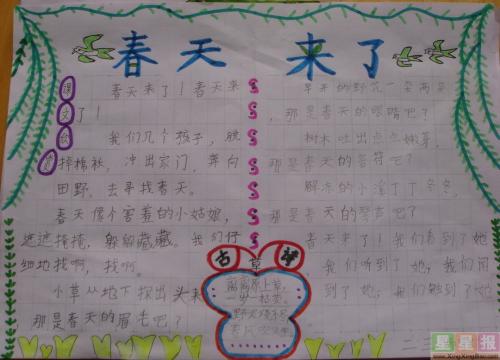 春天来了
课文欣赏
春天来了！春天来
了！
我们几个孩子，脱
掉棉袄，冲出家门，奔向
田野，去寻找春天。
春天像个害羞的小姑娘，
遮遮掩掩，躲躲藏藏。我们仔
细地找啊，找啊。
小草从地下探出头来
，那是春天的眉毛吧？
早开的野花一朵两朵
，那是春天的眼睛吧？
树木吐出点点嫩芽，
那是春天的音符吧？
解冻的小溪丁丁冬冬，
那是春天的琴声吧？
春天来了！我们看到了她
，我们听到了她，我们闻
到了她，我们触到了她
古诗
草
离离原上草，
一岁一枯荣。
野火烧不尽
星星报